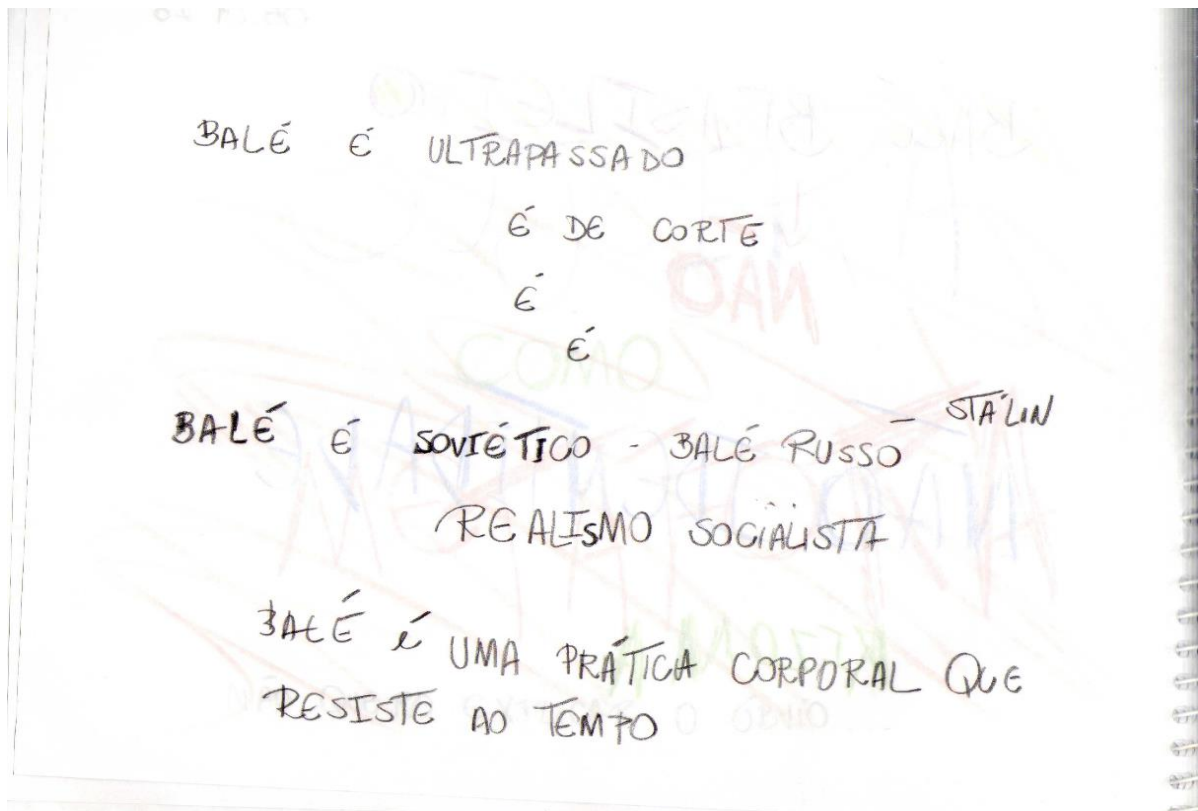 BALÉ É ULTRAPASSADO
É DE CORTE
É
É
BALÉ É SOVIÉTICO - BALÉ RUSSO - STÁLIN
REALISMO SOCIALISTA
BALÉ É UMA PRÁTICA CORPORAL QUE
RESISTE AO TEMPO